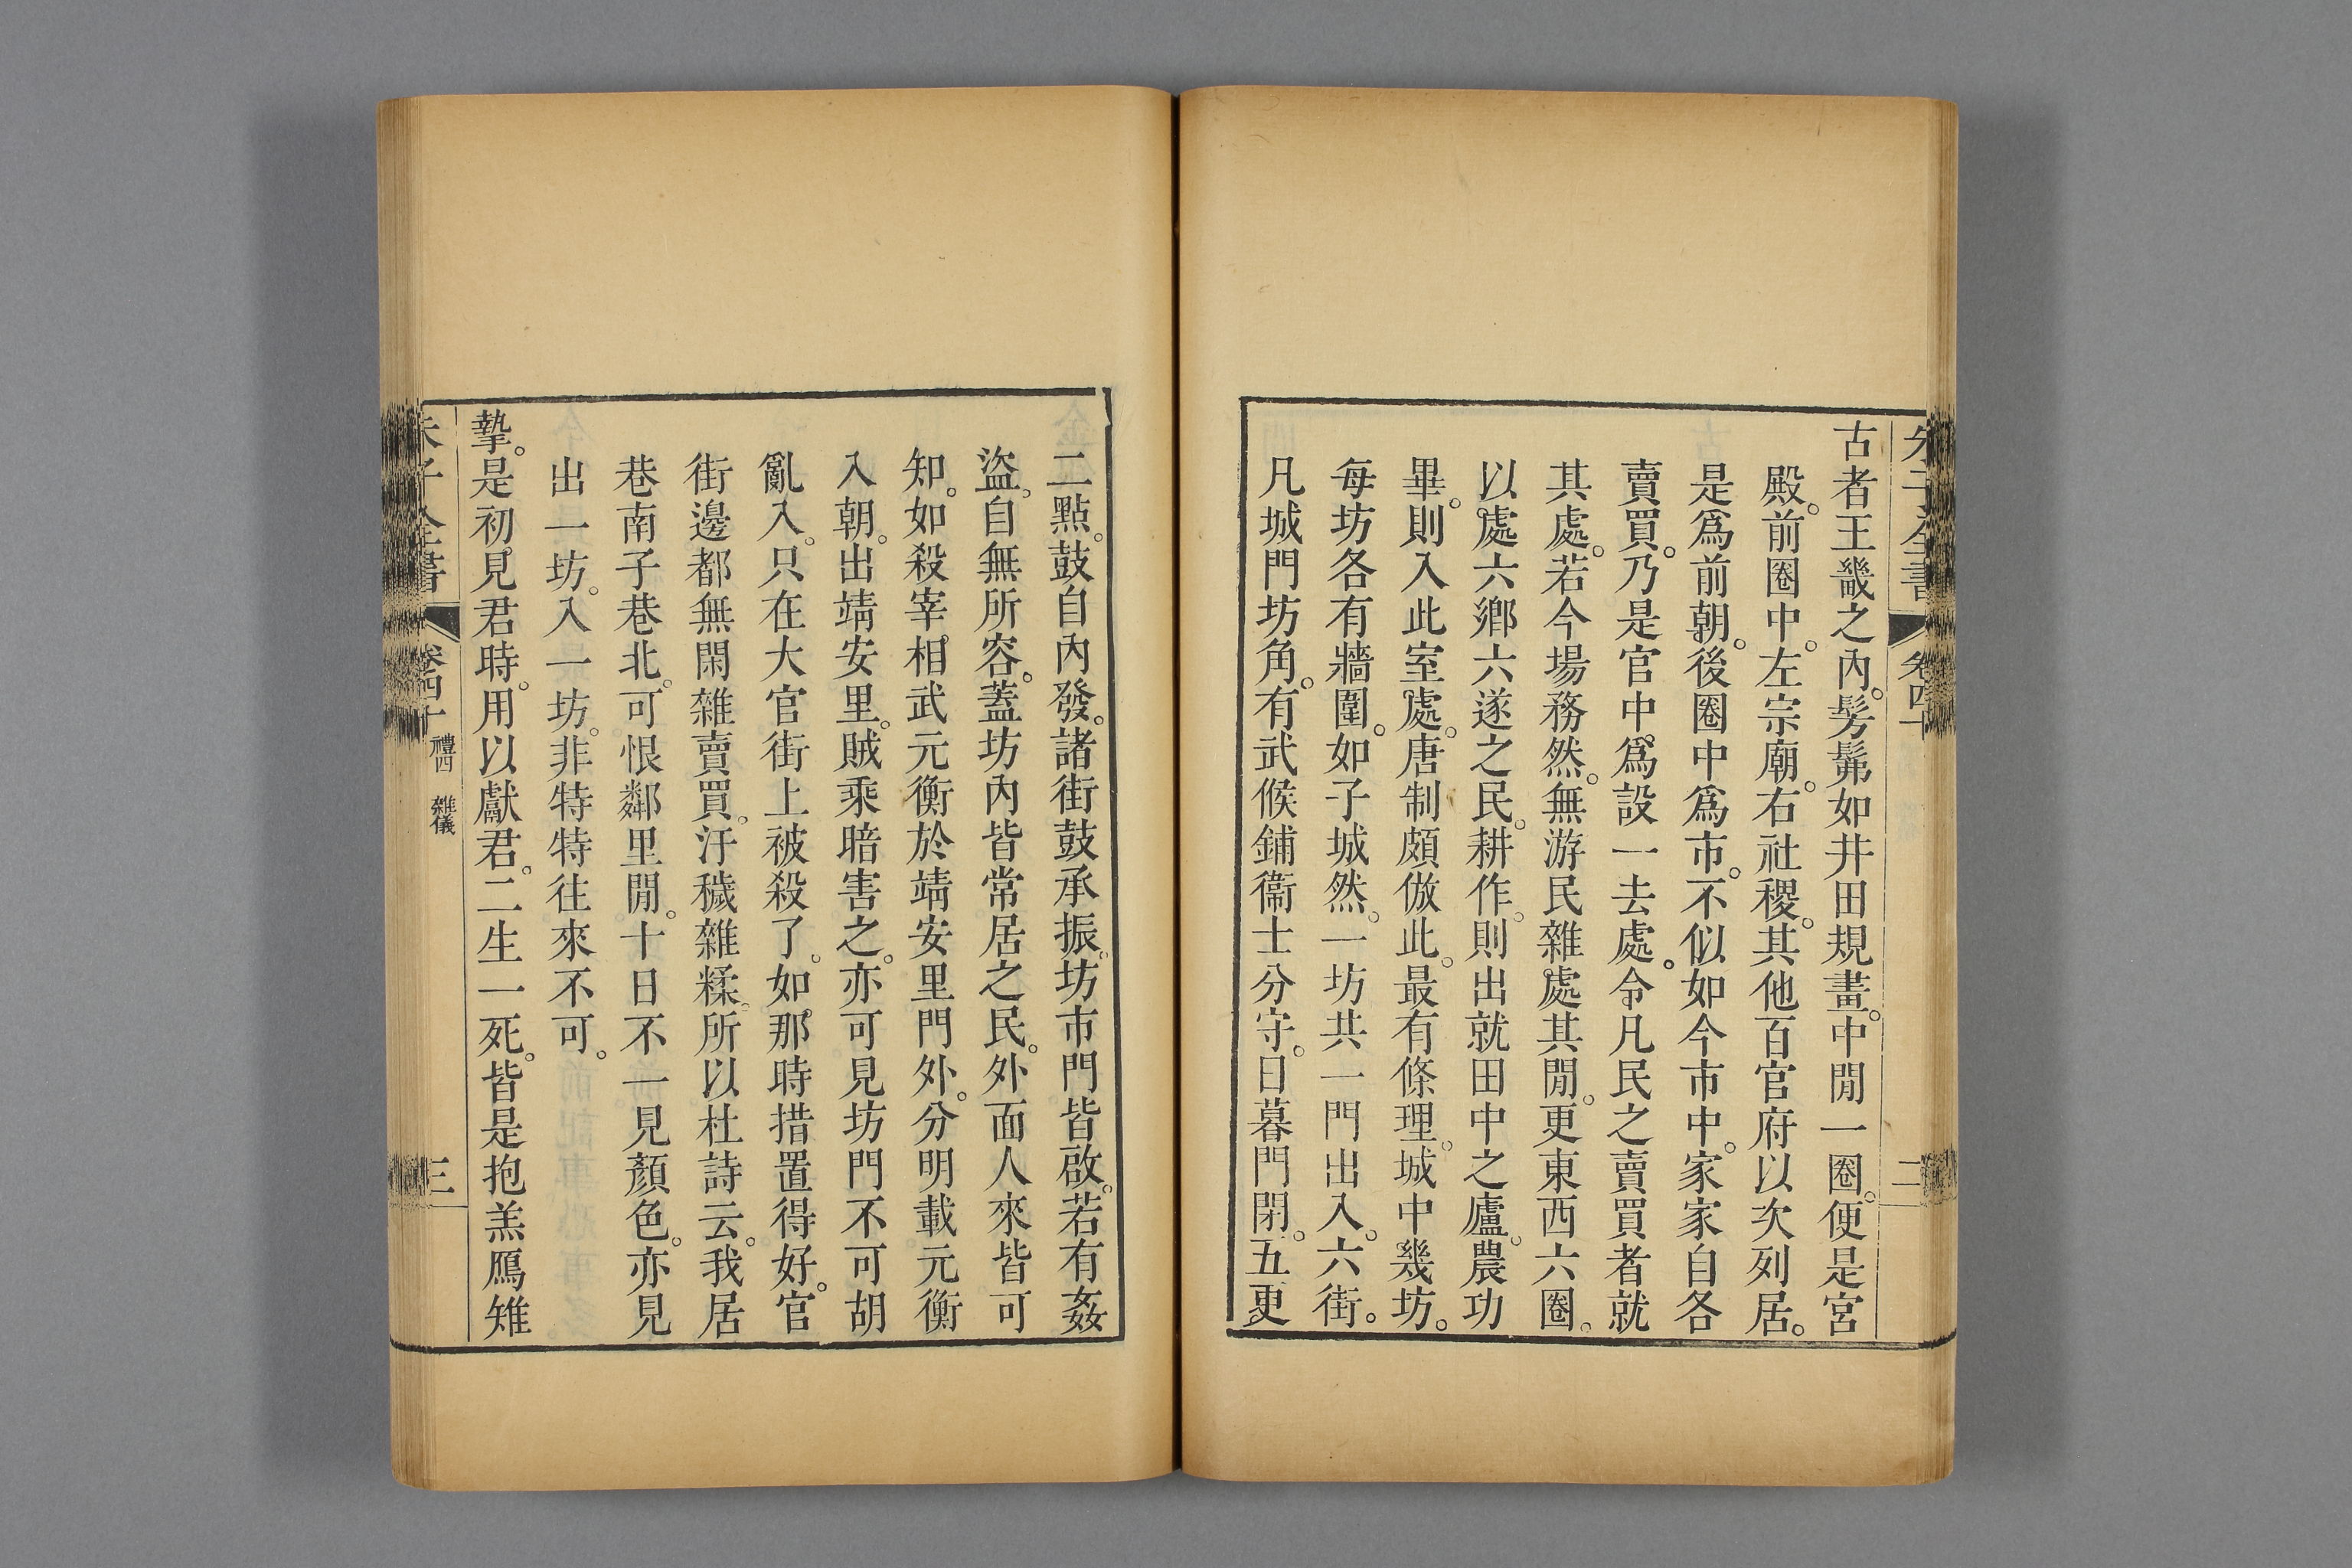 朱子全書 卷四十 二
古者王畿之內。髣髴如井田規畫。中閒一圈。便是宮
殿。前圈中。左宗廟。右社稷。其他百官府以次列居。
是爲前朝。後圈中爲市。不似如今市中。家家自各
賣買。乃是官中爲設一去處。令凡民之賣買者就
其處。若今場務然。無游民雜處其閒。更東西六圈。
以處六鄉六遂之民。耕作。則出就田中之廬。農功
畢。則入此室處。唐制頗倣此。最有條理。城中幾坊。
每坊各有牆圍。如子城然。一坊共一門出入。六街。
凡城門坊角。有武候鋪衞士分守。日暮門閉。五更
二點。鼓自內發。諸街鼓承振。坊市門皆啟。若有姦
盜。自無所容。蓋坊內皆常居之民。外面人來皆可
知。如殺宰相武元衡於靖安里門外。分明載元衡
入朝。出靖安里。賊乘暗害之。亦可見坊門不可胡
亂入。只在大官街上被殺了。如那時措置得好。官
街邊都無閑雜賣買。汙穢雜糅。所以杜詩云。我居
巷南子巷北。可恨鄰里閒。十日不一見顏色。亦見
出一坊。入一坊。非特特往來不可。
摯。是初見君時。用以獻君。二生一死。皆是抱羔鴈雉
朱子全書 卷四十 禮四 雜儀 三